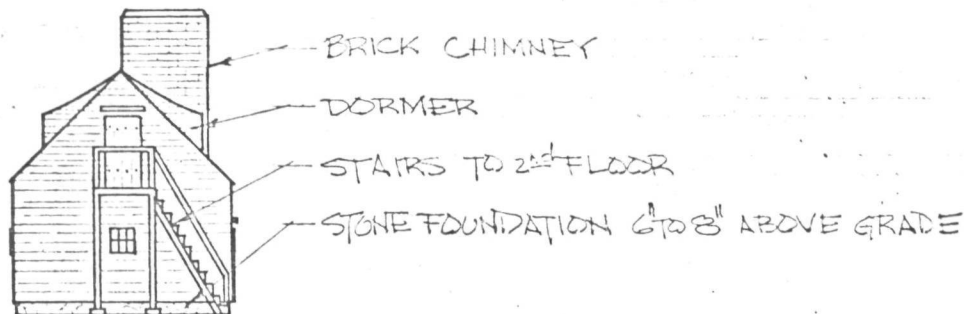 BRICK CHIMNEY
DORMER
STAIRS TO 2nd FLOOR
STONE FOUNDATION 6" TO 8" ABOVE GRADE